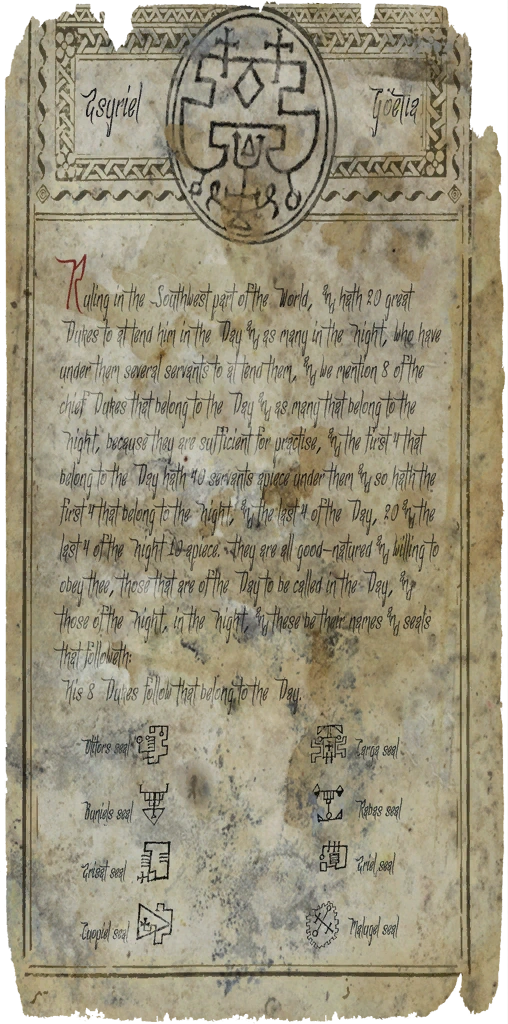 Asyriel
Göetia
Ruling in the Southwest part of the World, And hath 20 great
Dukes to attend him in the Day And as many in the Night, who have
under them several servants to attend them, And we mention 8 of the
chief Dukes that belong to the Day And as many that belong to the
Night, because they are sufficient for practise, And the first 4 that
belong to the Day hath 40 servants apiece under them And so hath the
first 4 that belong to the Night, And the last 4 of the Day, 20 And the
last 4 of the Night 10 apiece. they are all good-natured And willing to
obey thee, those that are of the Day to be called in the Day, And
those of the Night, in the Night, And these be their names And seals
that followeth:
His 8 Dukes follow that belong to the Day.
seal
Carga seal
Buniels seal
Rabas seal
Arisat seal
Ariel seal
Cuopiel seal
Malugel seal